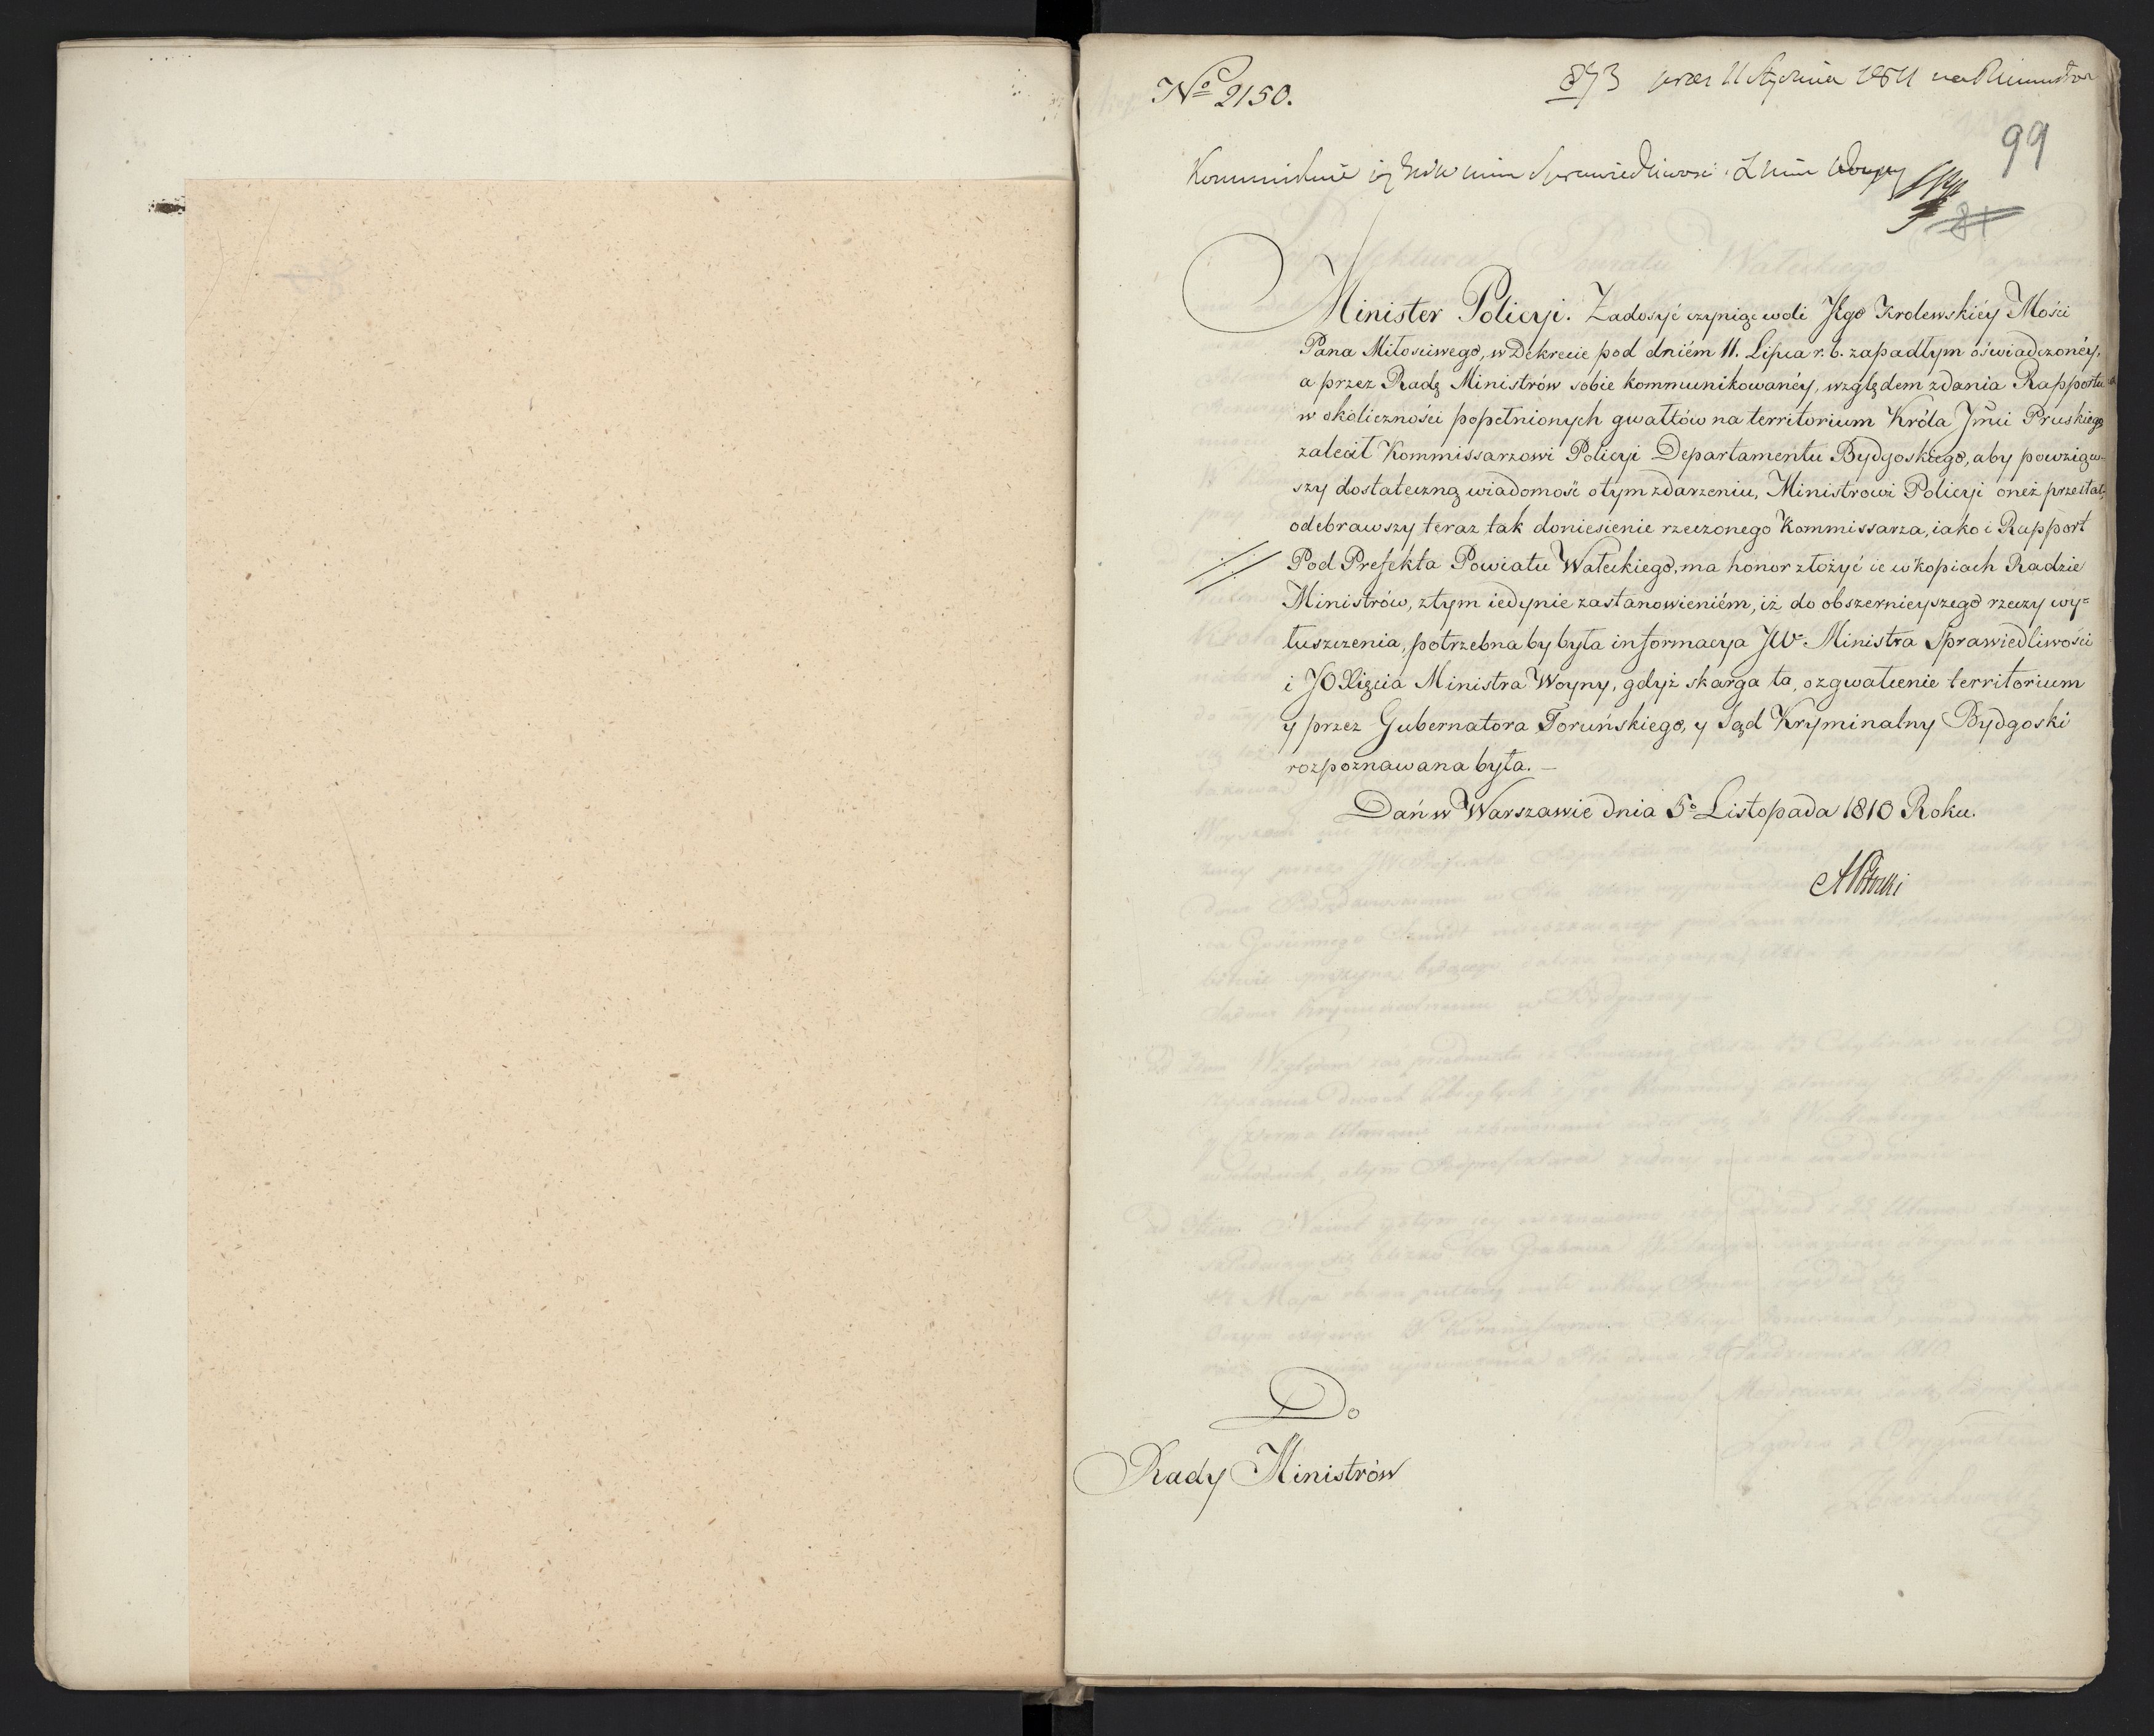 Nº 2150.
873 prez 11 Stycznia 1811 na
99
Kommunikuie się Min Sprawiedliwosci i Woyny
81
Minister Policyi. Zadosyć czyniąc woli Jego Krolewskiéy Mości
Pana Miłosciwego, w Dekrecie pod dniém 11. Lipca r. b. zapadłym oświadczonéy,
a przez Radę Ministrów sobie kommunikowanéy, względem zdania Rapportu
w okoliczności popełnionych gwałtów na territorium Króla Jmci Pruskiego
zalecił Kommissarzowi Policyi Departamentu Bydgoskiego, aby powziąw-
szy dostateczną wiadomość o tym zdarzeniu, Ministrowi Policyi oneż przesłał,
odebrawszy teraz tak doniesienie rzeczonego Kommissarza, iako i Rapport
Pod Prefekta Powiatu Wałeckiego, ma honor złożyć ie w kopiach Radzie
Ministrów, z tym iedynie zastanowieniém, iż do obszernieyszego rzeczy wy=
łuszczenia, potrzebna by była informacya JW. Ministra Sprawiedliwości
i JO Xięcia Ministra Woyny, gdyż skarga ta, o zgwałcenie territorium
y przez Gubernatora Toruńskiego, y Sąd Kryminalny Bydgoski
rozpoznawana była. —
Dań w Warszawie dnia 5º Listopada 1810 Roku.
APotocki
Do
Rady Ministrów